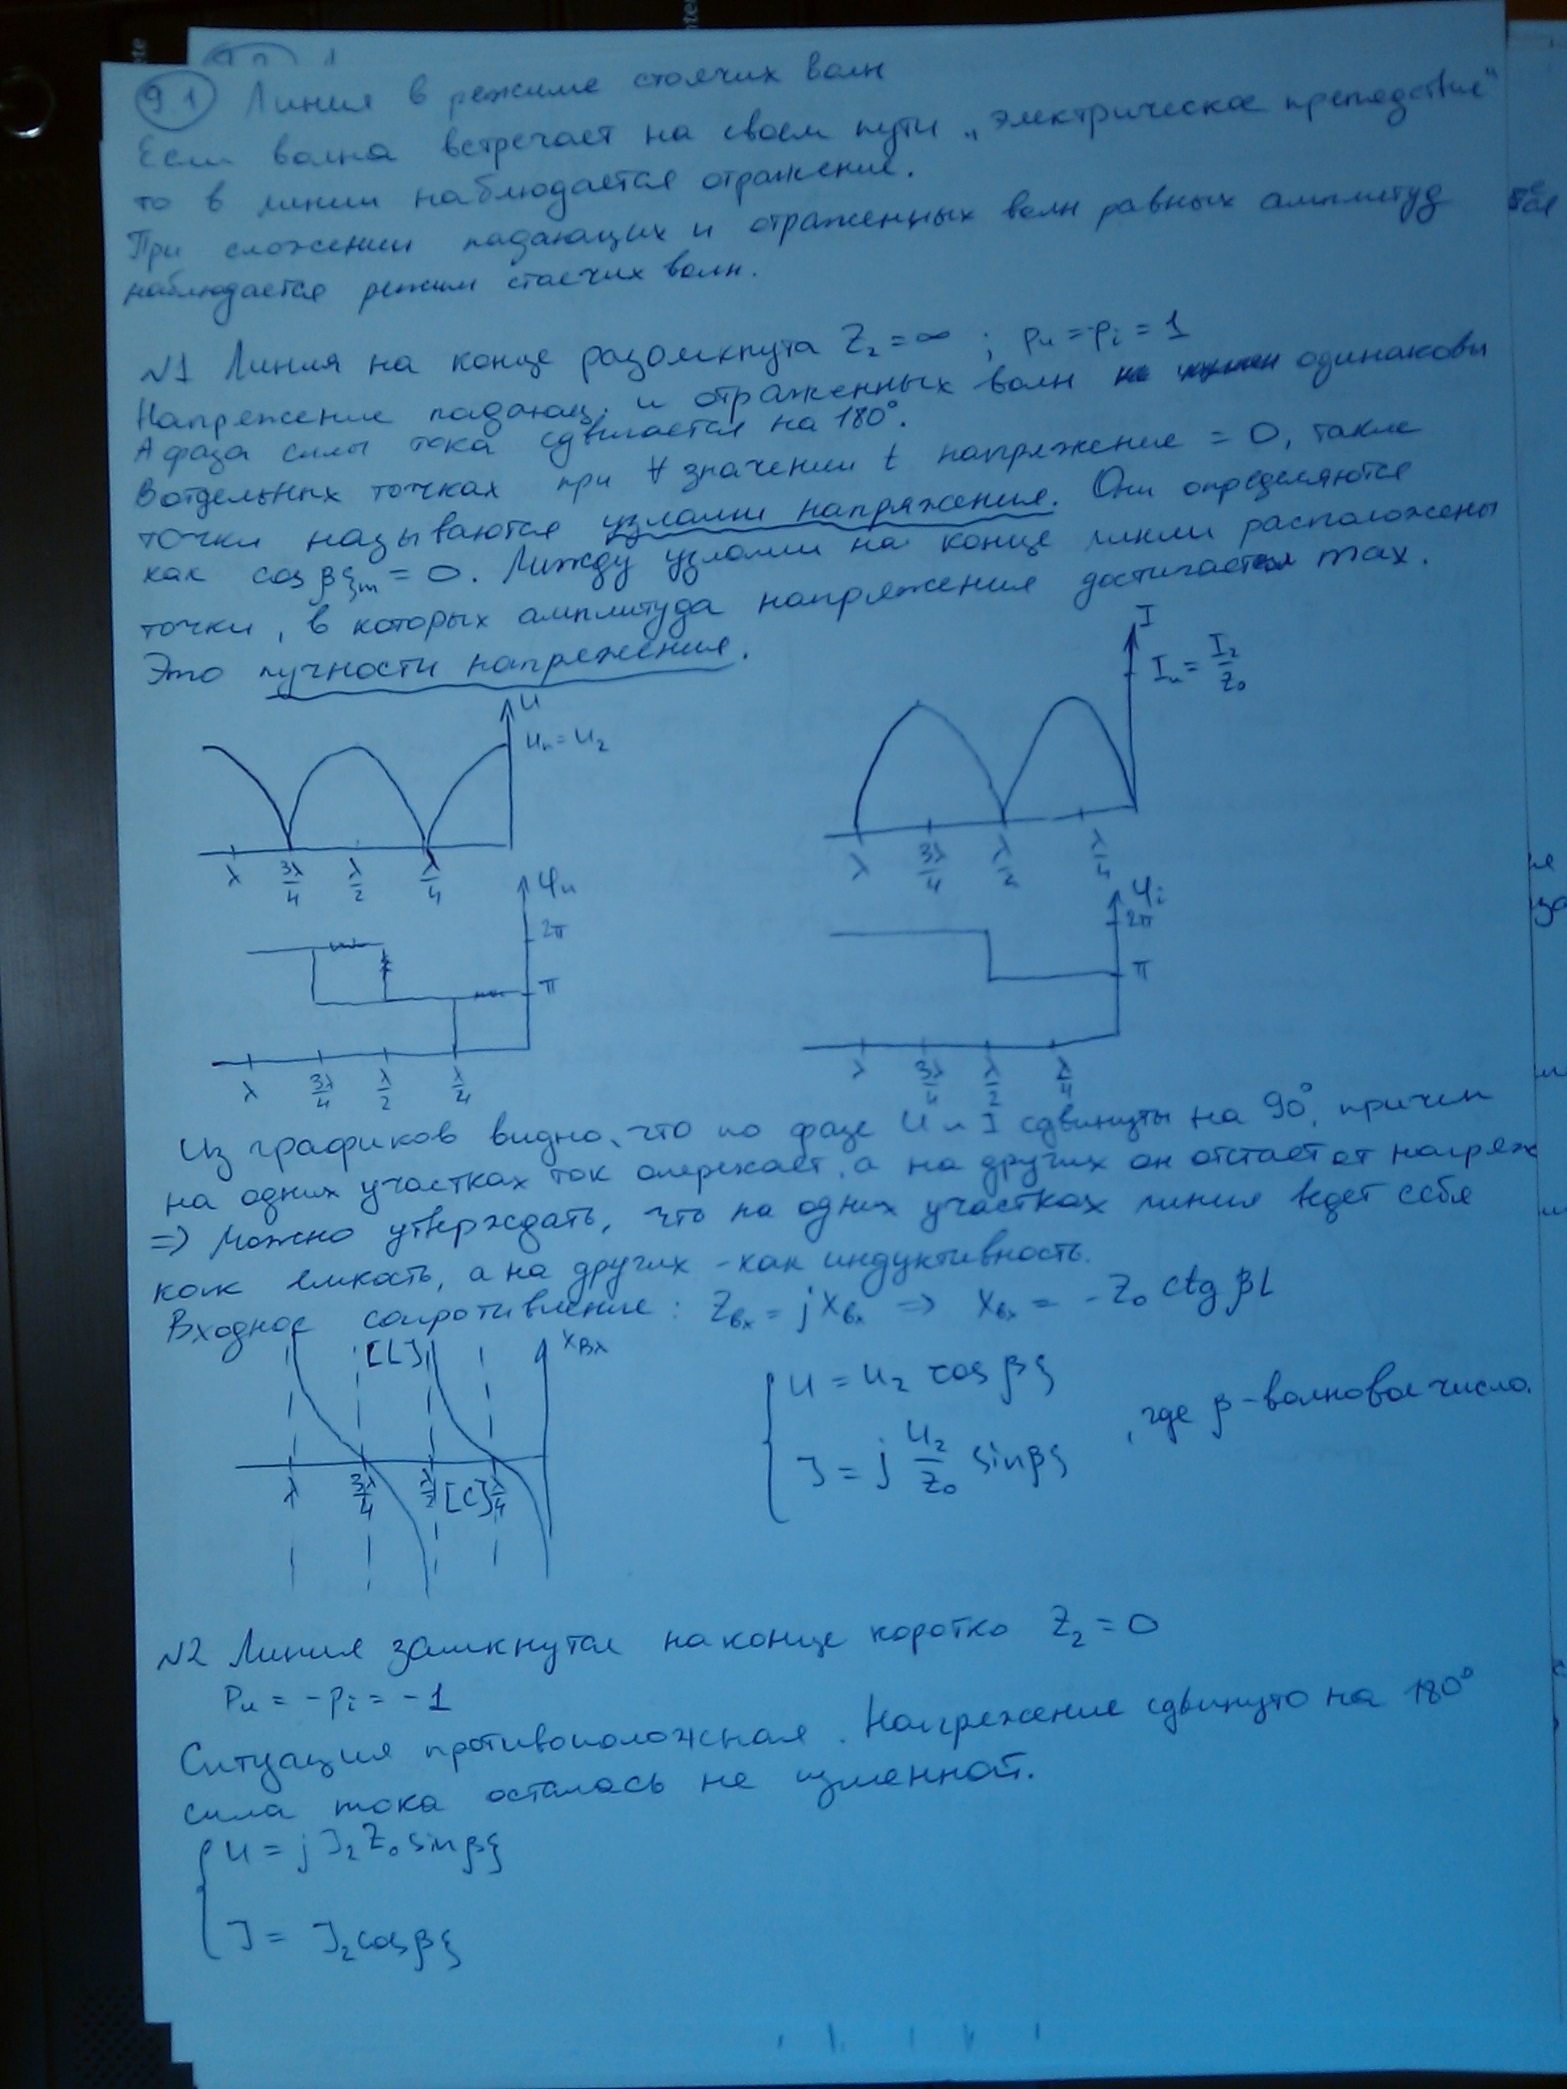 9.1 Линия в режиме стоячих волн
Если волна встречает на своем пути „электрическое препядствие"
то в линии наблюдается отражение.
При сложении падающих и отраженных волн равных амплитуд
наблюдается режим стоячих волн.
N1 Линия на конце разомкнута Z₂ = ∞ ; pᵤ = -pᵢ = 1
Напряжение падающ. и отраженных волн одинаковы
А фаза силы тока сдвигается на 180°.
В отдельных точках при ∀ значении t напряжение = 0, такие
точки называются узлами напряжения. Они определяются
как cos βξₘ = 0. Между узлами на конце линии расположены
точки, в которых амплитуда напряжения достигается max.
Это пучности напряжения.
U
Uₙ = U₂
λ 3λ/4 λ/2 λ/4
I
Iₙ = I₂/Z₀
λ 3λ/4 λ/2 λ/4
φᵤ
2π
π
λ 3λ/4 λ/2 λ/4
φᵢ
2π
π
λ 3λ/4 λ/2 λ/4
Из графиков видно, что по фазе U и I сдвинуты на 90°, причем
на одних участках ток опережает, а на других он отстает от напряж
=> Можно утверждать, что на одних участках линия ведет себя
как емкость, а на других - как индуктивность.
Входное сопротивление: Zвх = jXвх => Xвх = -Z₀ ctg βl
[L] Xвх
λ 3λ/4 λ/2 [C] λ/4
U = U₂ cos βξ
I = j U₂/Z₀ sin βξ , где β - волновое число.
N2 Линия замкнутая на конце коротко Z₂ = 0
pᵤ = -pᵢ = -1
Ситуация противоположная. Напряжение сдвинуто на 180°
сила тока осталась не изменной.
U = j I₂ Z₀ sin βξ
I = I₂ cos βξ